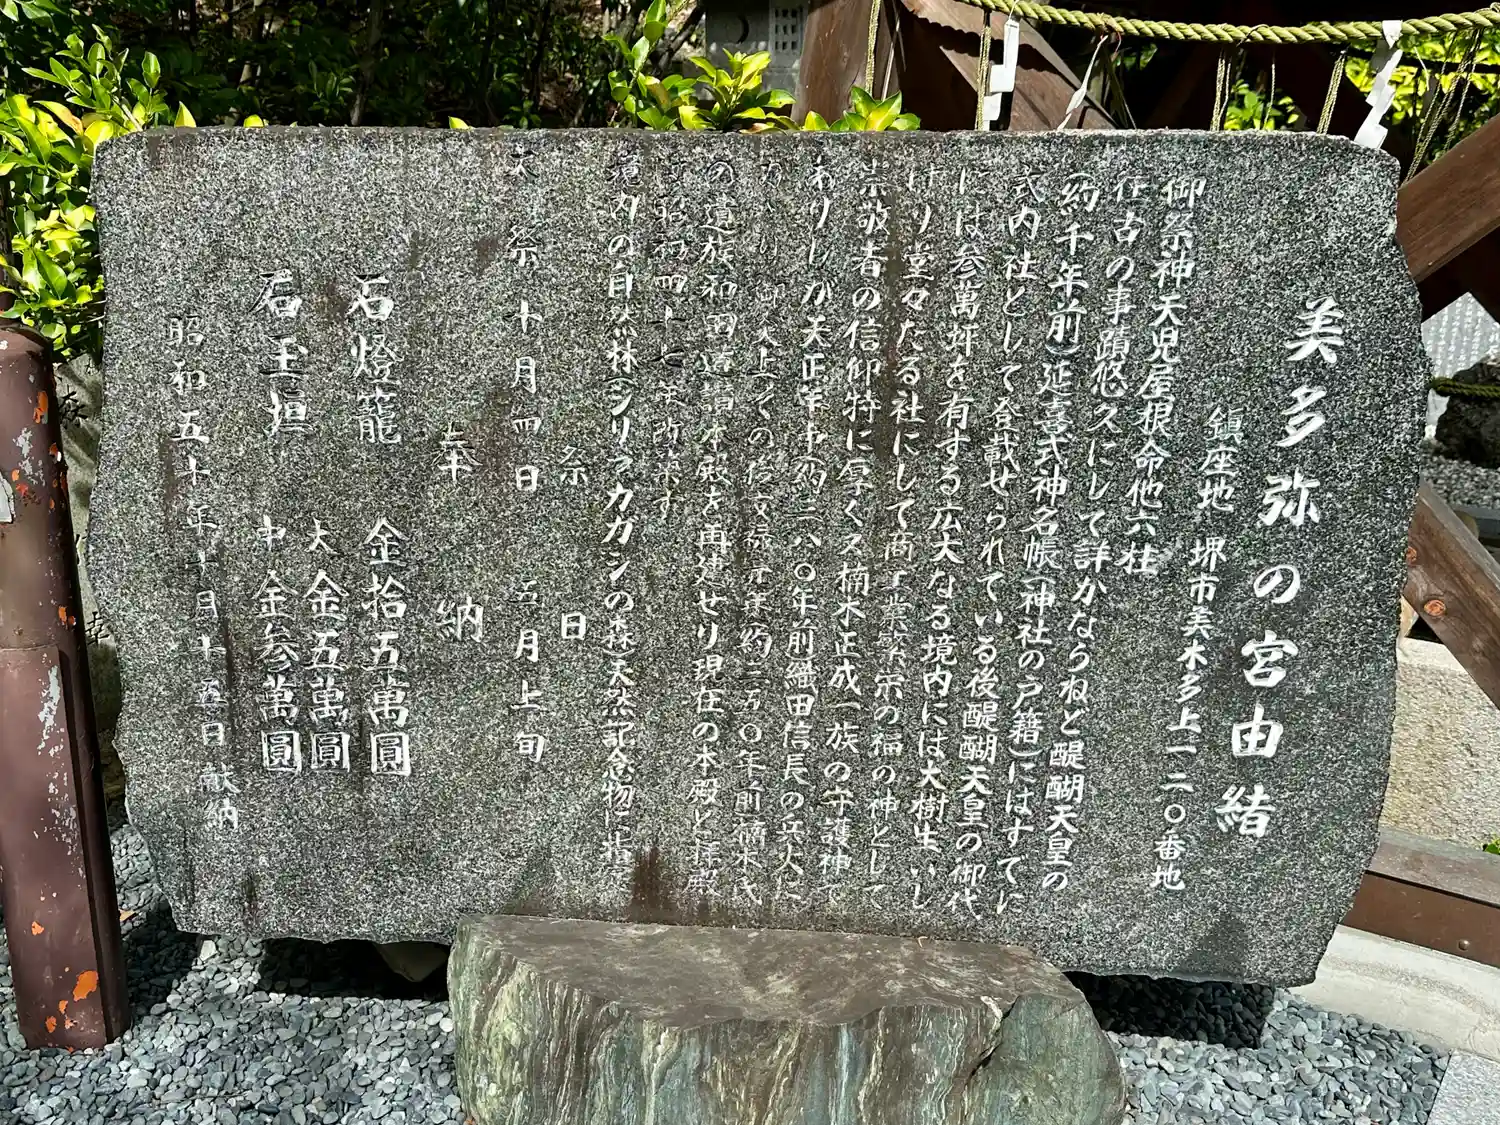 美多弥の宮由緒
鎮座地 堺市美木多上一二〇番地
御祭神天児屋根命他六柱
往古の事蹟悠久にして詳かならねど醍醐天皇の
(約千年前)延喜式神名帳(神社の戸籍)にはすでに
式内社として登載せられている後醍醐天皇の御代
には参萬坪を有する広大なる境内には大樹生いし
けり堂々たる社にして商工業繁栄の福の神として
崇敬者の信仰特に厚く又楠木正成一族の守護神で
ありしが天正年中(約三八〇年前織田信長の兵火に
の遺族和田道讃本殿を再建せり現在の本殿と拝殿
は昭和四十七年改築す
境内の自然林(シリブカガシの森)天然記念物に指定
祭日
大祭 十月四日 五月上旬
奉納
石燈籠 金拾五萬圓
大 金五萬圓
石玉垣 中 金参萬圓
昭和五十年十月十五日献納